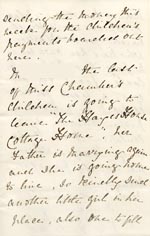 sending the money this
week for the children's
payments boarded out
here.
The last
of Miss Chamber's
children is going to
leave "The Hayes
Cottage Home" her
father is marrying again
and she is going home
to live, so kindly send
another little girl in her
place, also one to fill